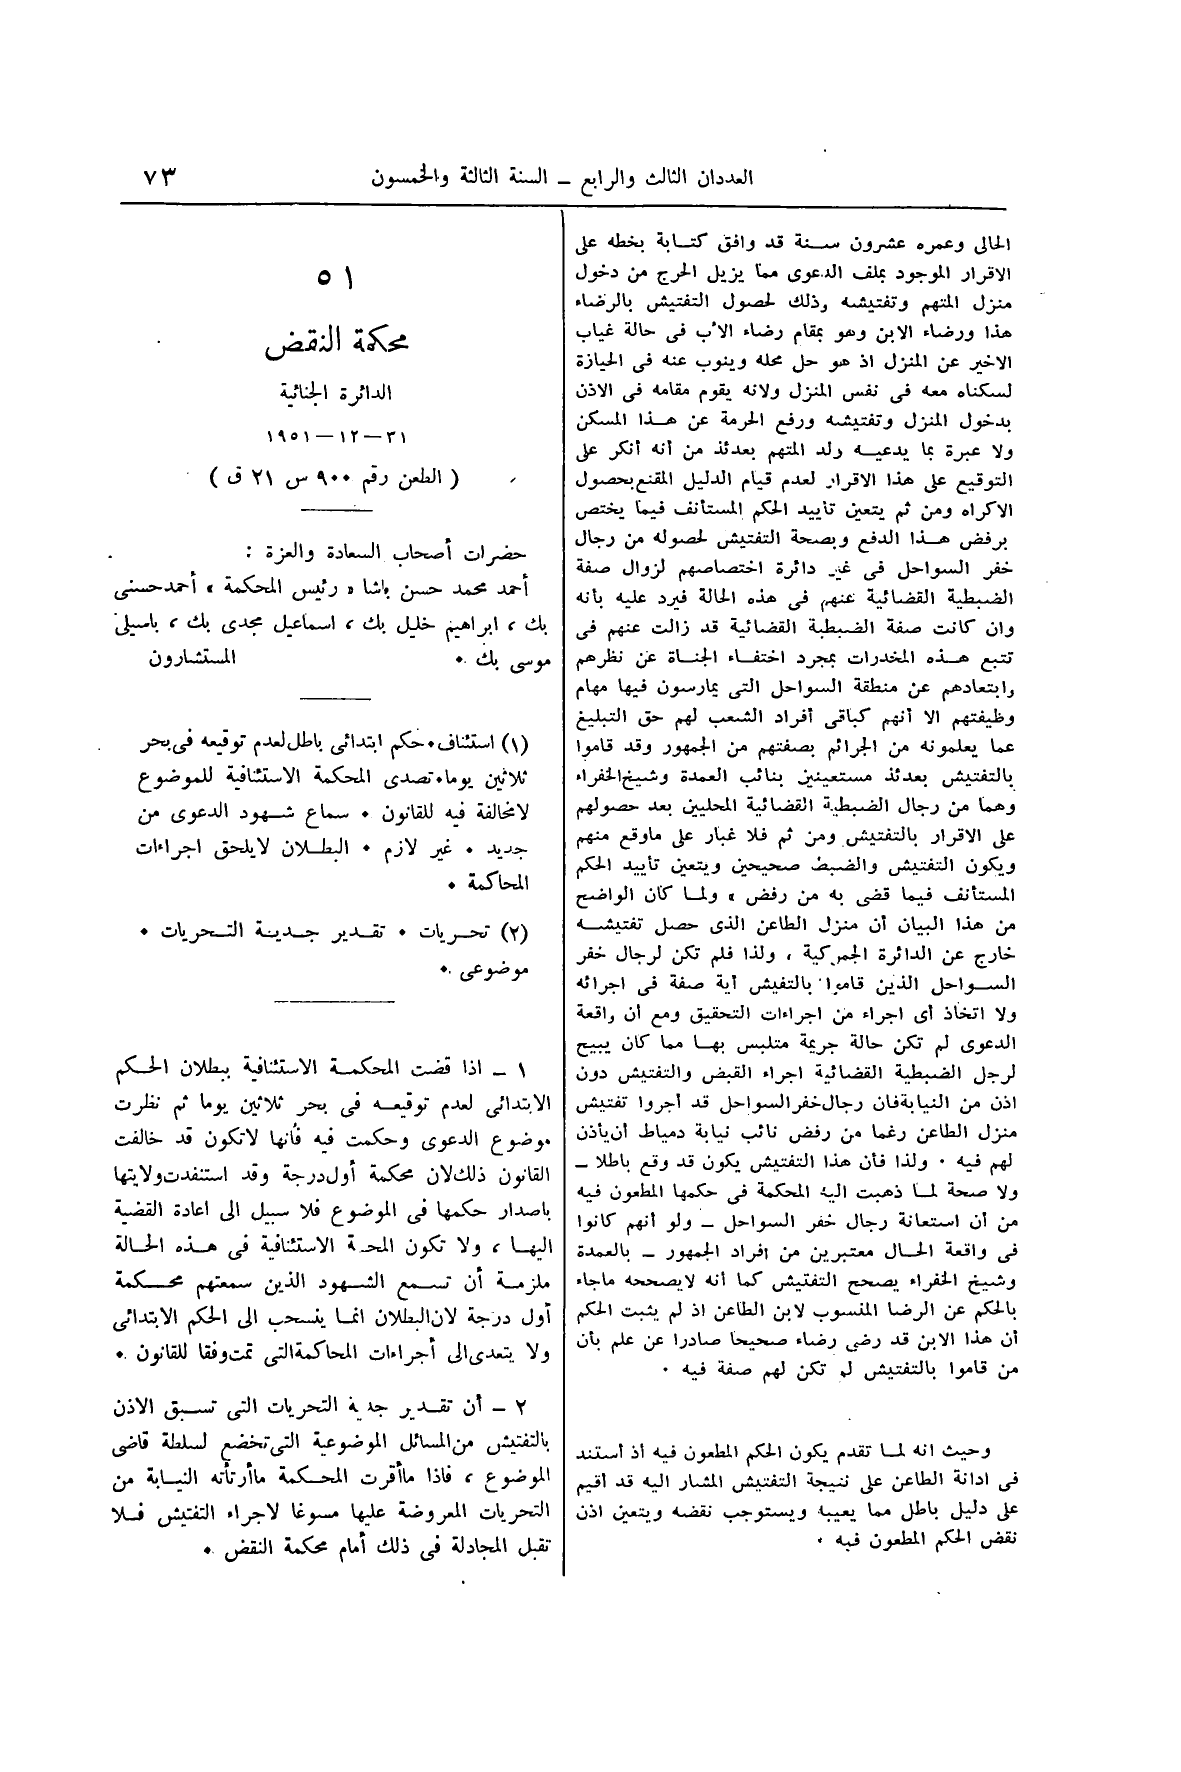 العددان الثالث والرابع ــ السنة الثالثة والخمسون
٧٣
الحالى وعمره عشرون سنة قد وافق كتابة بخطه على
الاقرار الموجود بملف الدعوى مما يزيل الحرج من دخول
منزل المتهم وتفتيشه وذلك لحصول التفتيش بالرضاء
هذا ورضاء الابن وهو بمقام رضاء الأب فى حالة غياب
الاخير عن المنزل اذ هو حل محله وينوب عنه فى الحيازة
لسكناه معه فى نفس المنزل ولانه يقوم مقامه فى الاذن
بدخول المنزل وتفتيشه ورفع الحرمة عن هذا المسكن
ولا عبرة بما يدعيه ولد المتهم بعدئذ من أنه أنكر على
التوقيع على هذا الاقرار لعدم قيام الدليل المقنع بحصول
الاكراه ومن ثم يتعين تأييد الحكم المستأنف فيما يختص
برفض هذا الدفع وبصحة التفتيش لحصوله من رجال
خفر السواحل فى غير دائرة اختصاصهم لزوال صفة
الضبطية القضائية عنهم فى هذه الحالة فيرد عليه بأنه
وان كانت صفة الضبطية القضائية قد زالت عنهم فى
تتبع هذه المخدرات بمجرد اختفاء الجناة عن نظرهم
وابتعادهم عن منطقة السواحل التى يمارسون فيها مهام
وظيفتهم الا أنهم كباقى أفراد الشعب لهم حق التبليغ
عما يعلمونه من الجرائم بصفتهم من الجمهور وقد قاموا
بالتفتيش بعدئذ مستعينين بنائب العمدة وشيخ الخفراء
وهما من رجال الضبطية القضائية المحليين بعد حصولهم
على الاقرار بالتفتيش ومن ثم فلا غبار على ماوقع منهم
ويكون التفتيش والضبط صحيحين ويتعين تأييد الحكم
المستأنف فيما قضى به من رفض » ولما كان الواضح
من هذا البيان أن منزل الطاعن الذى حصل تفتيشه
خارج عن الدائرة الجمركية ، ولذا فلم تكن لرجال خفر
السواحل الذين قاموا بالتفيش أية صفة فى اجرائه
ولا اتخاذ أى اجراء من اجراءات التحقيق ومع أن واقعة
الدعوى لم تكن حالة جريمة متلبس بها مما كان يبيح
لرجل الضبطية القضائية اجراء القبض والتفتيش دون
اذن من النيابة فان رجال خفر السواحل قد أجروا تفتيش
منزل الطاعن رغما من رفض نائب نيابة دمياط أن يأذن
لهم فيه ٠ ولذا فأن هذا التفتيش يكون قد وقع باطلا ــ
ولا صحة لما ذهبت اليه المحكمة فى حكمها المطعون فيه
من أن استعانة رجال خفر السواحل ــ ولو أنهم كانوا
فى واقعة الحال معتبرين من افراد الجمهور ــ بالعمدة
وشيخ الخفراء يصحح التفتيش كما أنه لايصححه ماجاء
بالحكم عن الرضا المنسوب لابن الطاعن اذ لم يثبت الحكم
أن هذا الابن قد رضى رضاء صحيحا صادرا عن علم بأن
من قاموا بالتفتيش لم تكن لهم صفة فيه ٠
وحيث انه لما تقدم يكون الحكم المطعون فيه اذ أستند
فى ادانة الطاعن على نتيجة التفتيش المشار اليه قد أقيم
على دليل باطل مما يعيبه ويستوجب نقضه ويتعين اذن
نقض الحكم المطعون فيه ٠
٥١
محكمة النقض
الدائرة الجنائية
٣١ــ١٢ــ١٩٥١
( الطعن رقم ٩٠٠ س ٢١ ق )
حضرات أصحاب السعادة والعزة :
أحمد محمد حسن باشا « رئيس المحكمة » أحمدحسنى
بك ، ابراهيم خليل بك ، اسماعيل مجدى بك ، باسيلى
موسى بك ٠ المستشارون
(١) استئناف ٠ حكم ابتدائى باطل لعدم توقيعه فى بحر
ثلاثين يوما ٠ تصدى المحكمة الاستئنافية للموضوع
لامخالفة فيه للقانون ٠ سماع شهود الدعوى من
جديد ٠ غير لازم ٠ البطلان لايلحق اجراءات
المحاكمة ٠
(٢) تحريات ٠ تقدير جدية التحريات ٠
موضوعى ٠
١ ــ اذا قضت المحكمة الاستئنافية ببطلان الحكم
الابتدائى لعدم توقيعه فى بحر ثلاثين يوما ثم نظرت
موضوع الدعوى وحكمت فيه فأنها لاتكون قد خالفت
القانون ذلك لان محكمة أول درجة وقد استنفدت ولايتها
باصدار حكمها فى الموضوع فلا سبيل الى اعادة القضية
اليها ، ولا تكون المحة الاستئنافية فى هذه الحالة
ملزمة أن تسمع الشهود الذين سمعتهم محكمة
أول درجة لان البطلان انما ينسحب الى الحكم الابتدائى
ولا يتعدى الى أجراءات المحاكمة التى تمت وفقا للقانون ٠
٢ ــ أن تقدير جدية التحريات التى تسبق الاذن
بالتفتيش من المسائل الموضوعية التى تخضع لسلطة قاضى
الموضوع ، فاذا ماأقرت المحكمة ماأرتأته النيابة من
التحريات المعروضة عليها مسوغا لاجراء التفتيش فلا
تقبل المجادلة فى ذلك أمام محكمة النقض ٠